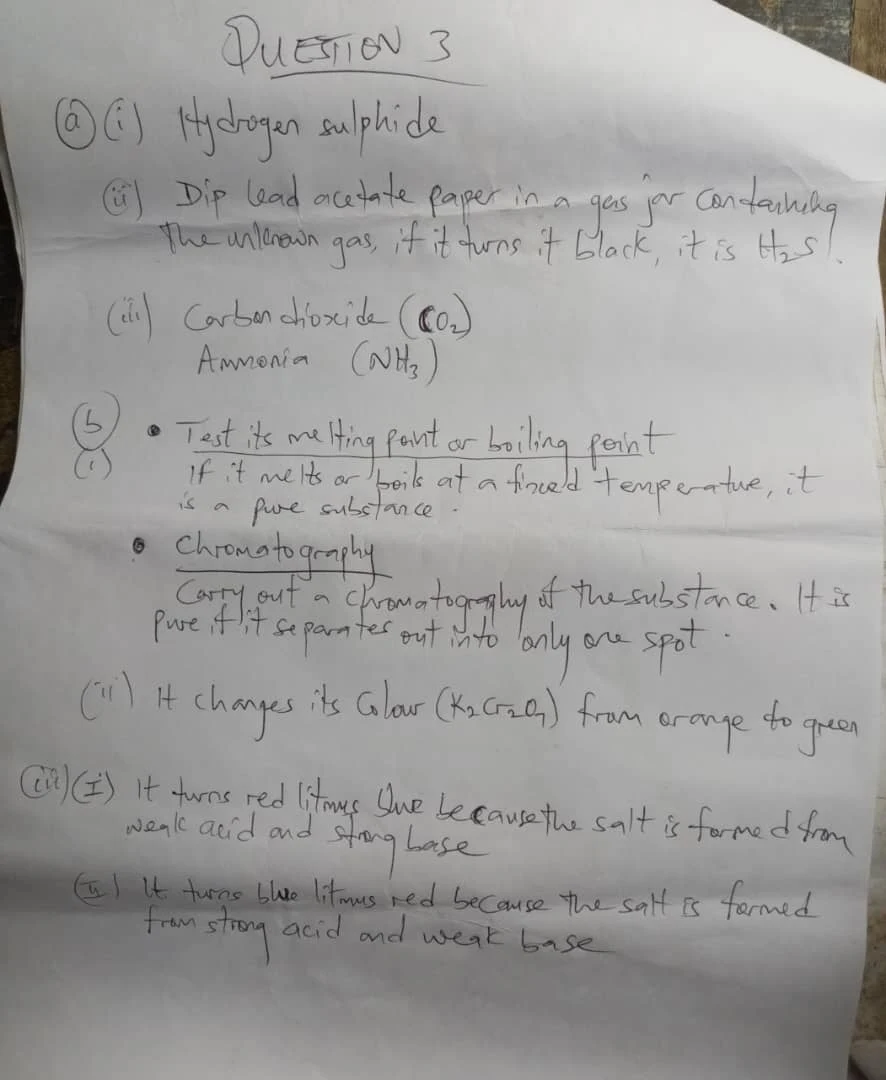 QUESTION 3
(a) (i) Hydrogen sulphide
(ii) Dip lead acetate paper in a gas jar containing
the unknown gas, if it turns it black, it is H₂S.
(iii) Carbon dioxide (CO₂)
Ammonia (NH₃)
(b) • Test its melting point or boiling point
(i) If it melts or boils at a fixed temperature, it
is a pure substance.
• Chromatography
Carry out a chromatography of the substance. It is
pure if it separates out into only one spot.
(ii) It changes its Colour (K₂Cr₂O₇) from orange to green
(iii) (I) It turns red litmus blue because the salt is formed from
weak acid and strong base
(II) It turns blue litmus red because the salt is formed
from strong acid and weak base